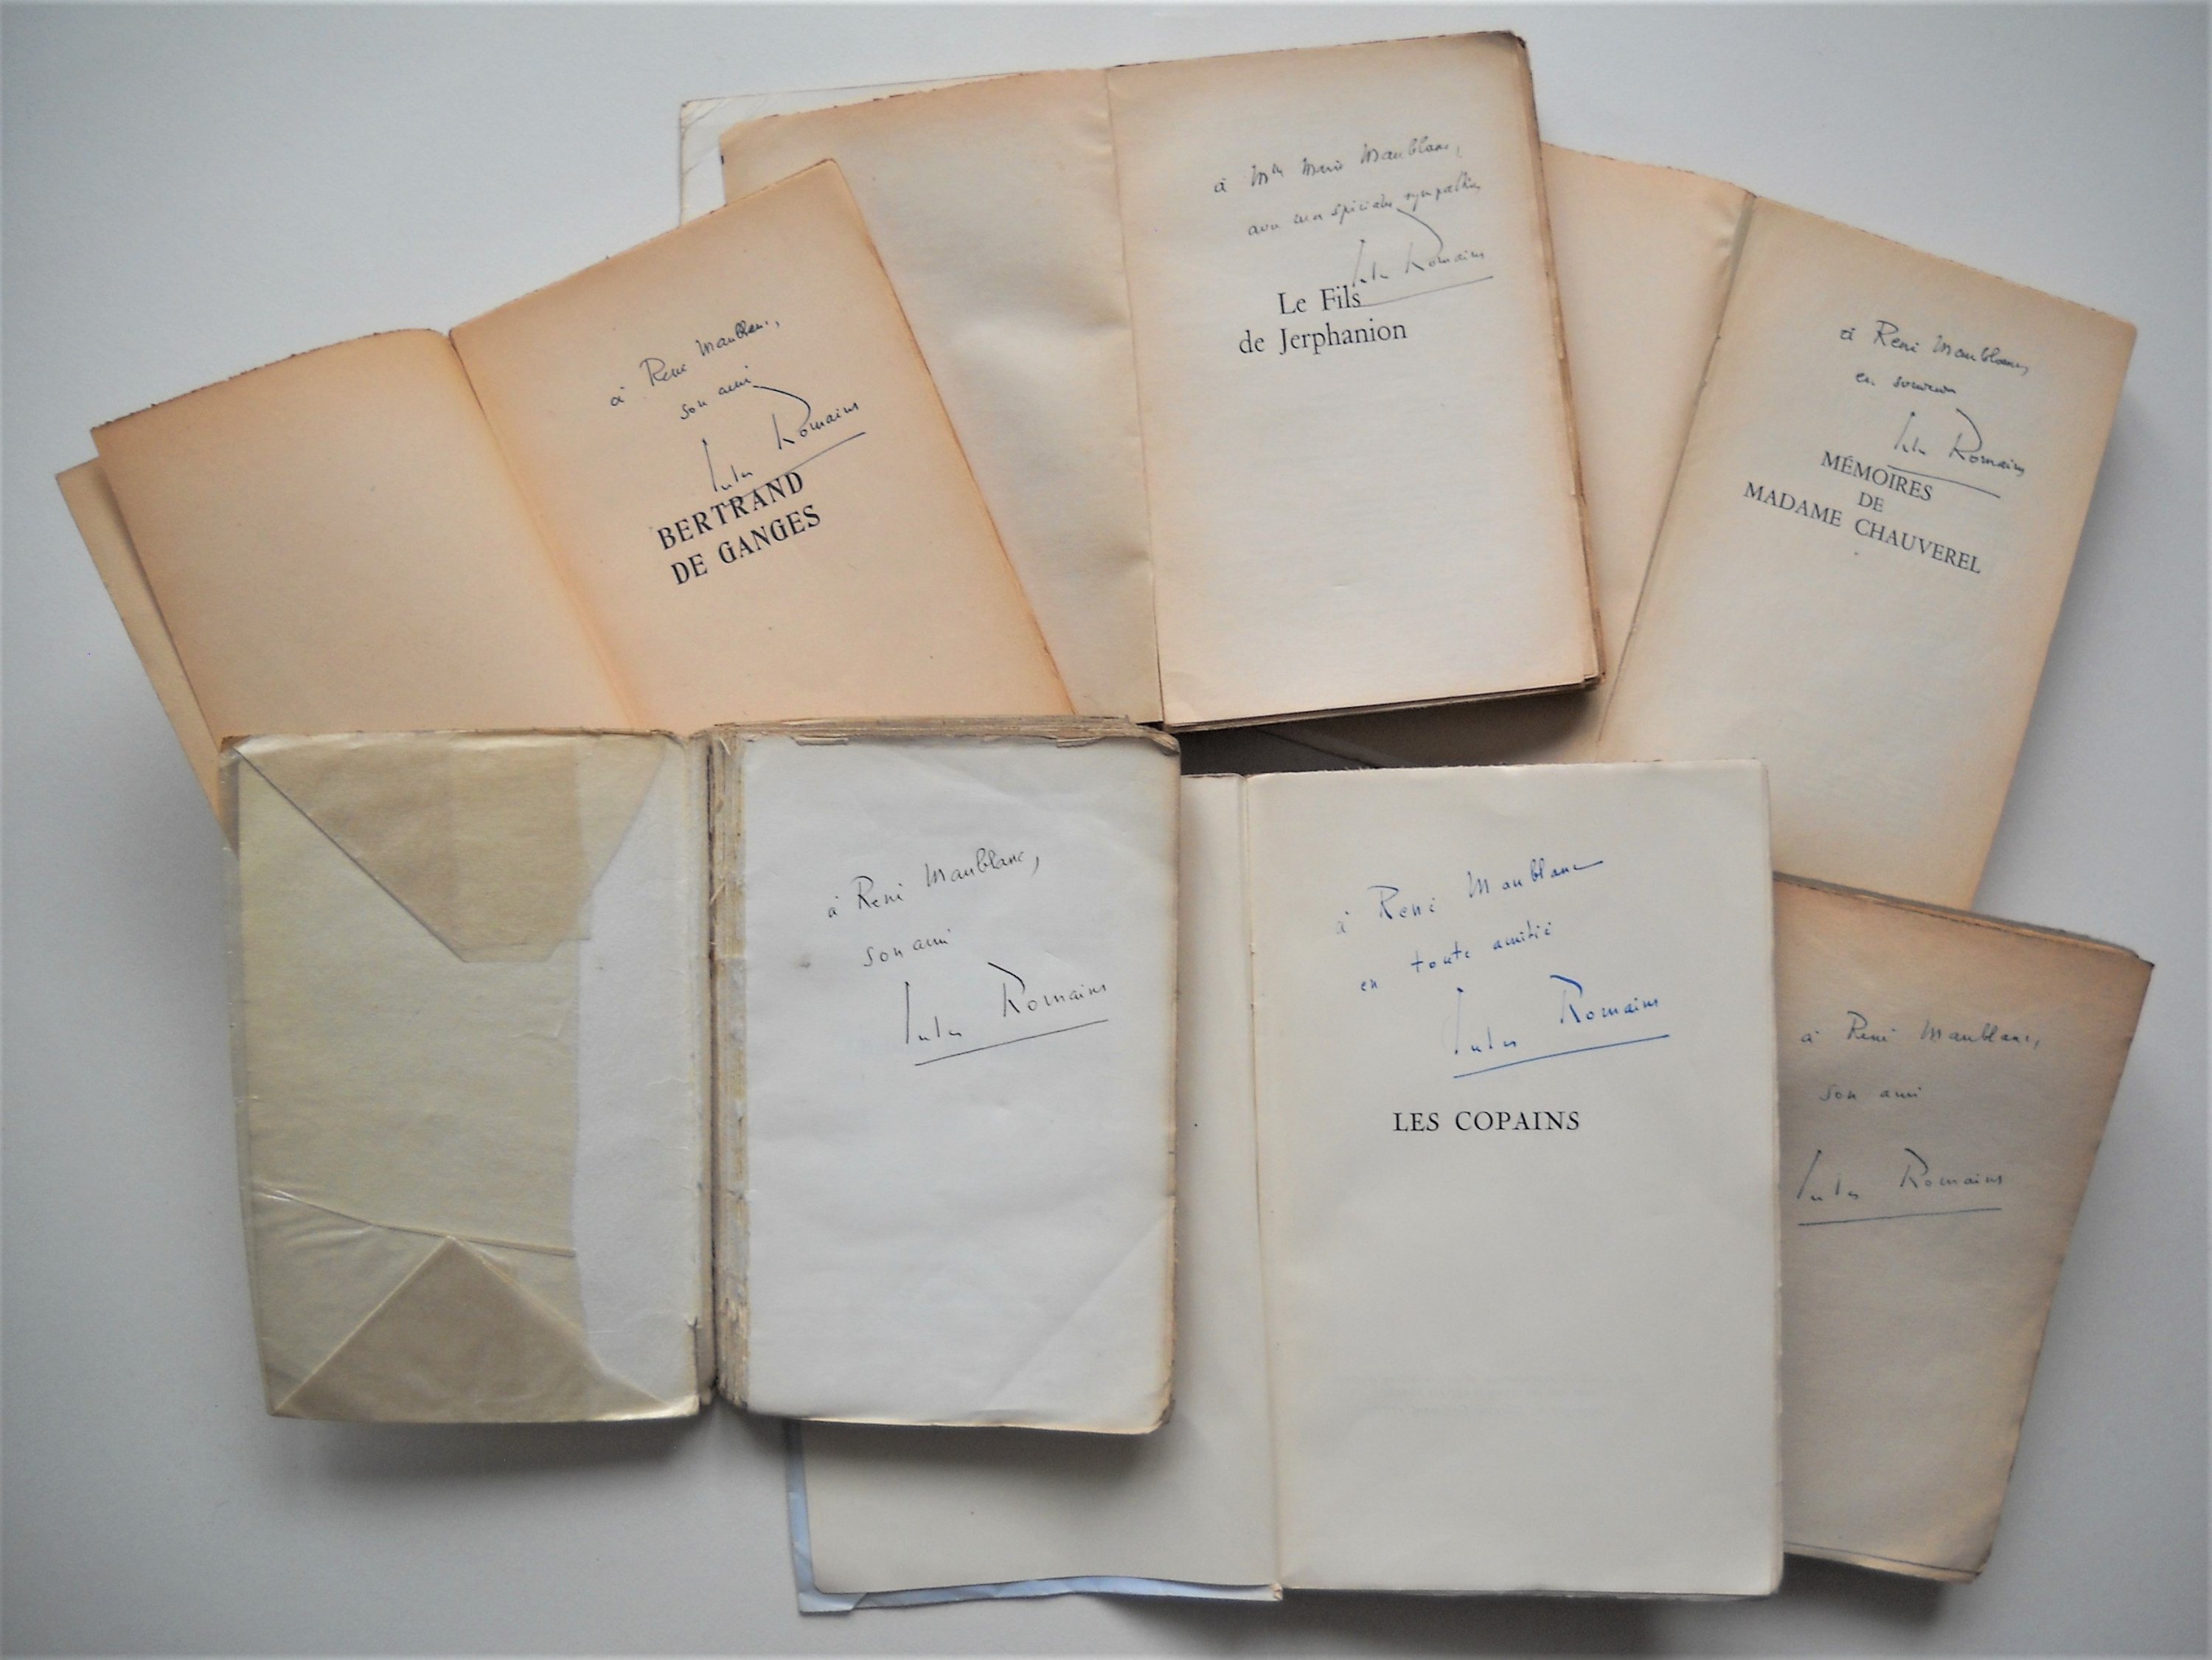 à René Maublanc,
son ami
Jules Romains
BERTRAND
DE GANGES
à Mme Marie Maublanc,
avec mes spéciales sympathies
Jules Romains
Le Fils
de Jerphanion
à René Maublanc,
en souvenir
Jules Romains
MÉMOIRES
DE
MADAME CHAUVEREL
à René Maublanc,
son ami
Jules Romains
à René Maublanc
en toute amitié
Jules Romains
LES COPAINS
à René Maublanc,
son ami
Jules Romains